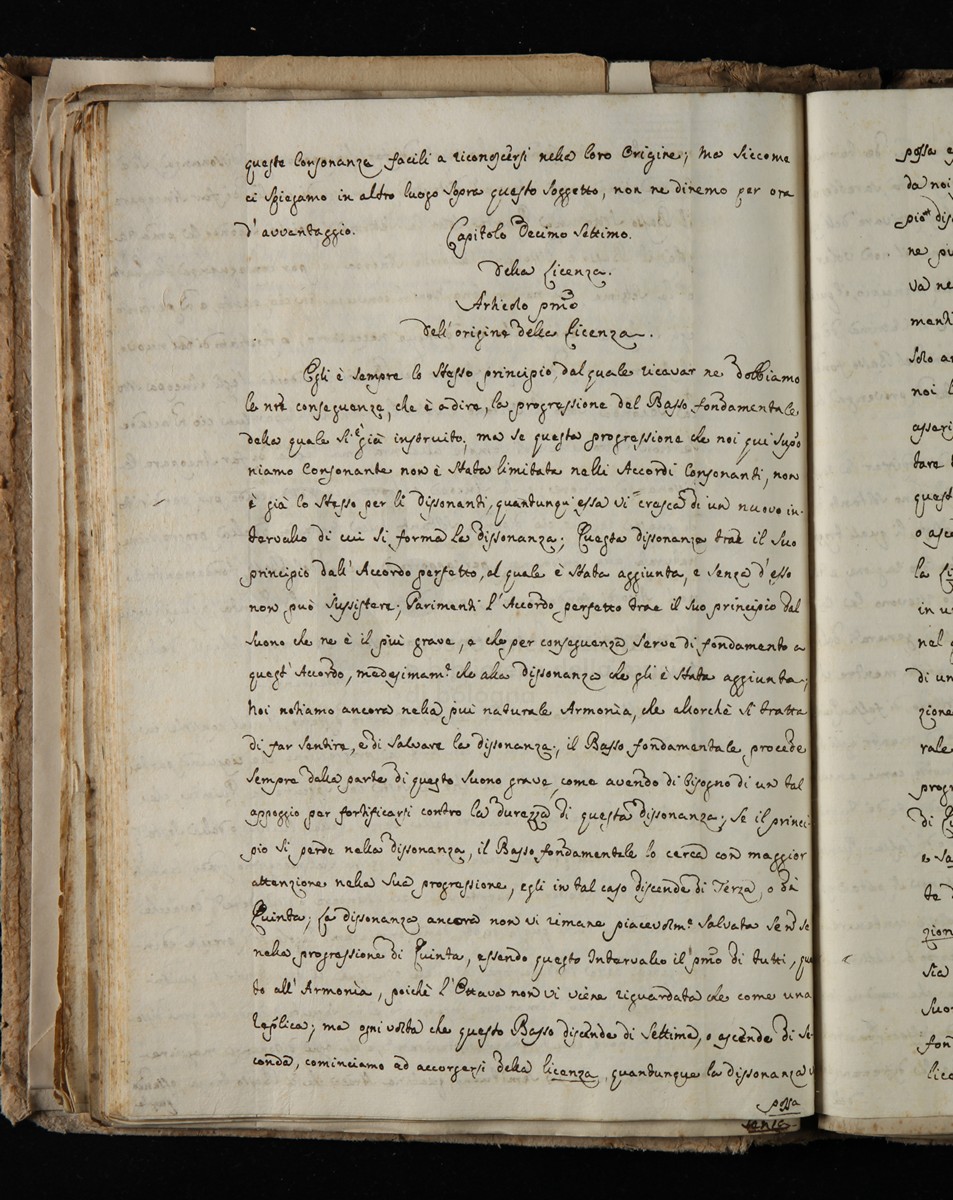 queste Consonanze facili a riconoscersi nella loro Origine; Ma siccome
ci spiegamo in altro luogo sopra questo soggetto, non ne diremo per ora
d'avvantaggio.
Capitolo Decimo Settimo.
Della Licenza.
Articolo pmo
Dell'origine della Licenza.
Egli è sempre lo stesso principio, dal quale ricavar ne dobbiamo
le nre conseguenze, che è a dire, la progressione del Basso fondamentale
della quale si è già instruito; ma se questa progressione che noi qui suppo
niamo Consonante non è stata limitata nelli Accordi Consonanti, non
è già lo stesso per li dissonanti, quantunqu'essa vi cresca di un nuovo in-
tervallo di cui si forma la dissonanza; Questa dissonanza trae il suo
principio dall'Accordo perfetto, al quale è stata aggiunta, e senza d'esso
non può sussistere; Parimenti l'Accordo perfetto trae il suo principio dal
suono che ne è il più grave, e che per conseguenza serve di fondamento a
quest'Accordo, medesimam.e che alla dissonanza che gli è stata aggiunta;
Noi notiamo ancora nella più naturale Armonìa, che allorchè si tratta
di far sentire, e di salvare la dissonanza, il Basso fondamentale procede
sempre dalla parte di questo suono grave, come avendo di bisogno di un tal
appoggio per fortificarsi contro la durezza di questa dissonanza; se il princi-
pio si perde nella dissonanza, il Basso fondamentale lo cerca con maggior
attenzione nella sua progressione, egli in tal caso discende di Terza, o di
Quinta; La dissonanza ancora non vi rimane piacevolm.e salvata se n se
nella progressione di Quinta, essendo questo Intervallo il pmo di tutti, qua
to all'Armonìa, poichè l'Ottava non vi viene riguardata che come una
replica; ma ogni volta che questo Basso discende di Settima, o ascende di Se-
conda, cominciamo ad accorgersi della licenza, quantunque la dissonanza v
possa
possa e
da noi
ne pu
va ne
solo a
noi l
tare
quest
o asc
la Li
in u
nel
di un
zione
rale
progr
di
e sa
te
zion
sia
suo
fon
lice